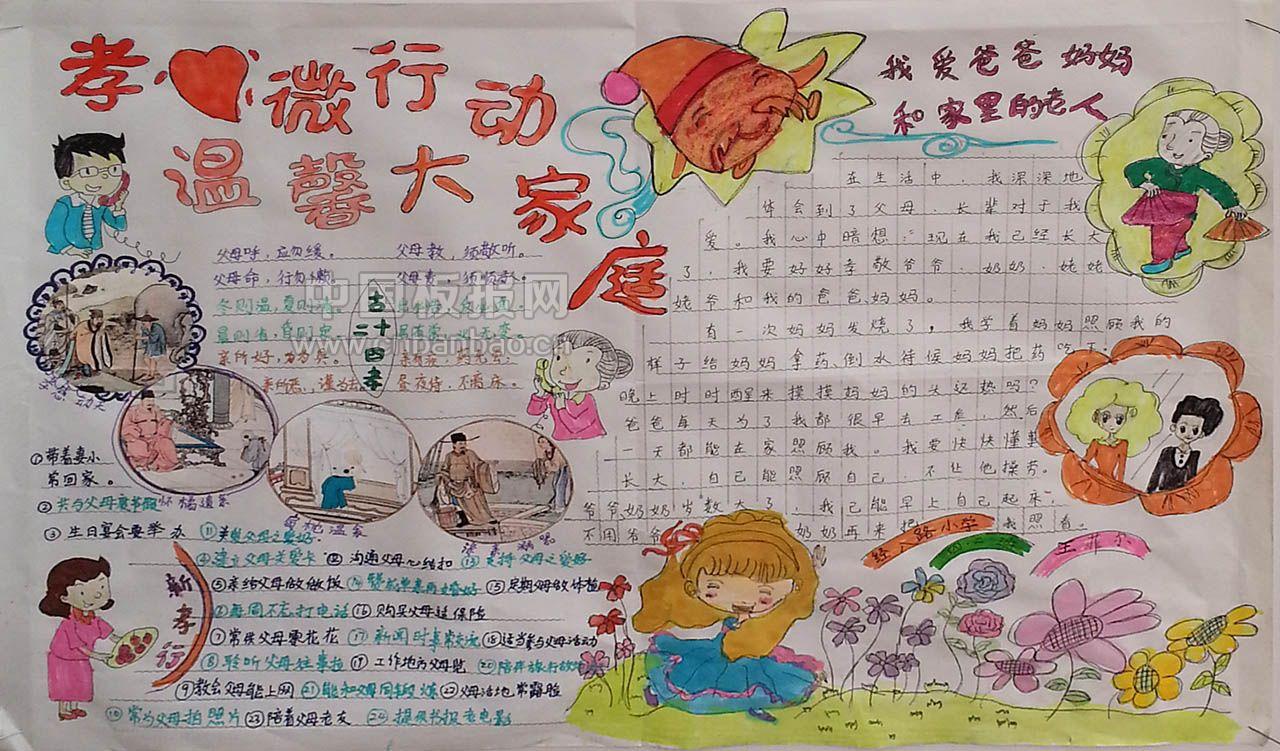 孝心微行动
温馨大家庭
父母呼，应勿缓。 父母教，须敬听。
父母命，行勿懒。 父母责，须顺承。
冬则温，夏则凊。
晨则省，昏则定。
亲所好，
亲所恶，谨为去 昼夜侍，不离床。
古
二十
四
孝
中国板报网
www.cnbanbao.cn
怀橘遗亲
新孝行
①带着妻小
常回家。
②共与父母度节假
③生日宴会要举办
④建立父母关爱卡
⑤亲给父母做做饭
⑥每周不忘打电话
⑦常候父母零花花
⑧聆听父母往事拉
⑨教会父母能上网
⑩常为父母拍照片
⑫沟通父母心结扣
⑬支持父母之爱好
⑭赞成单亲再婚好
⑮定期父母做体检
⑯购买父母适保险
⑰新闻时事常交流
⑱适当参与父母活动
⑲工作地方父母
⑳陪伴旅行故
㉑能和父母同锻炼
㉒父母活地常露脸
㉓陪着父母老友
㉔提供书报老电影
我爱爸爸妈妈
和家里的老人
在生活中，我深深地
体会到了父母、长辈对于我
爱。我心中暗想：现在我已经长大
了，我要好好孝敬爷爷、奶奶、姥姥
姥爷和我的爸爸、妈妈。
有一次妈妈发烧了，我学着妈妈照顾我的
样子给妈妈拿药、倒水待候妈妈把药吃下
晚上时时醒来摸摸妈妈的头还热吗？
爸爸每天为了我都很早去工
一天都能在家照顾我。我要快快懂事
长大，自己能照顾自己 不让他操劳。
爷爷、奶奶岁数大了，我己能早上自己起来
不用爷爷 奶奶再来把我照看。
路小学